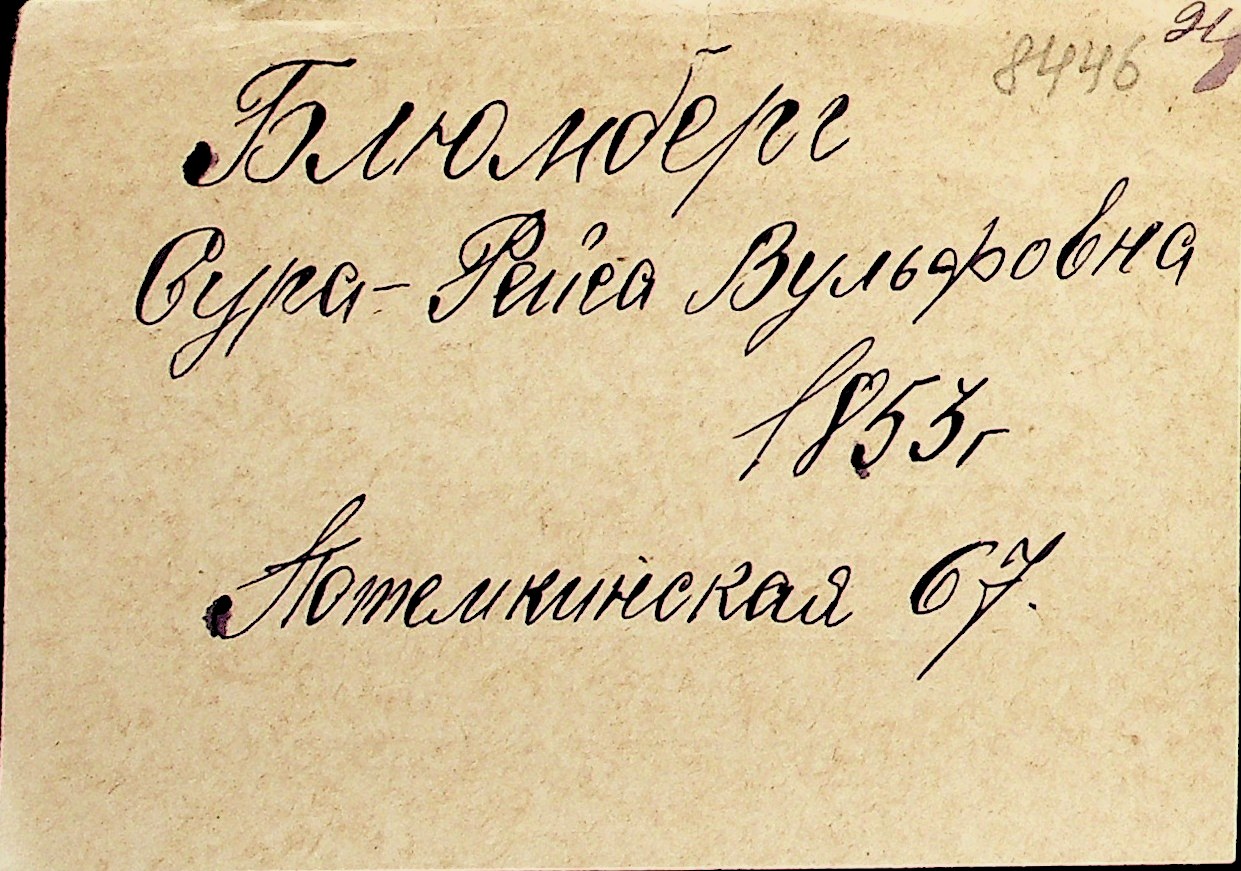 8446
Блюмберг
Сура-Рейса Вульфовна
1853г
Потемкинская 67.